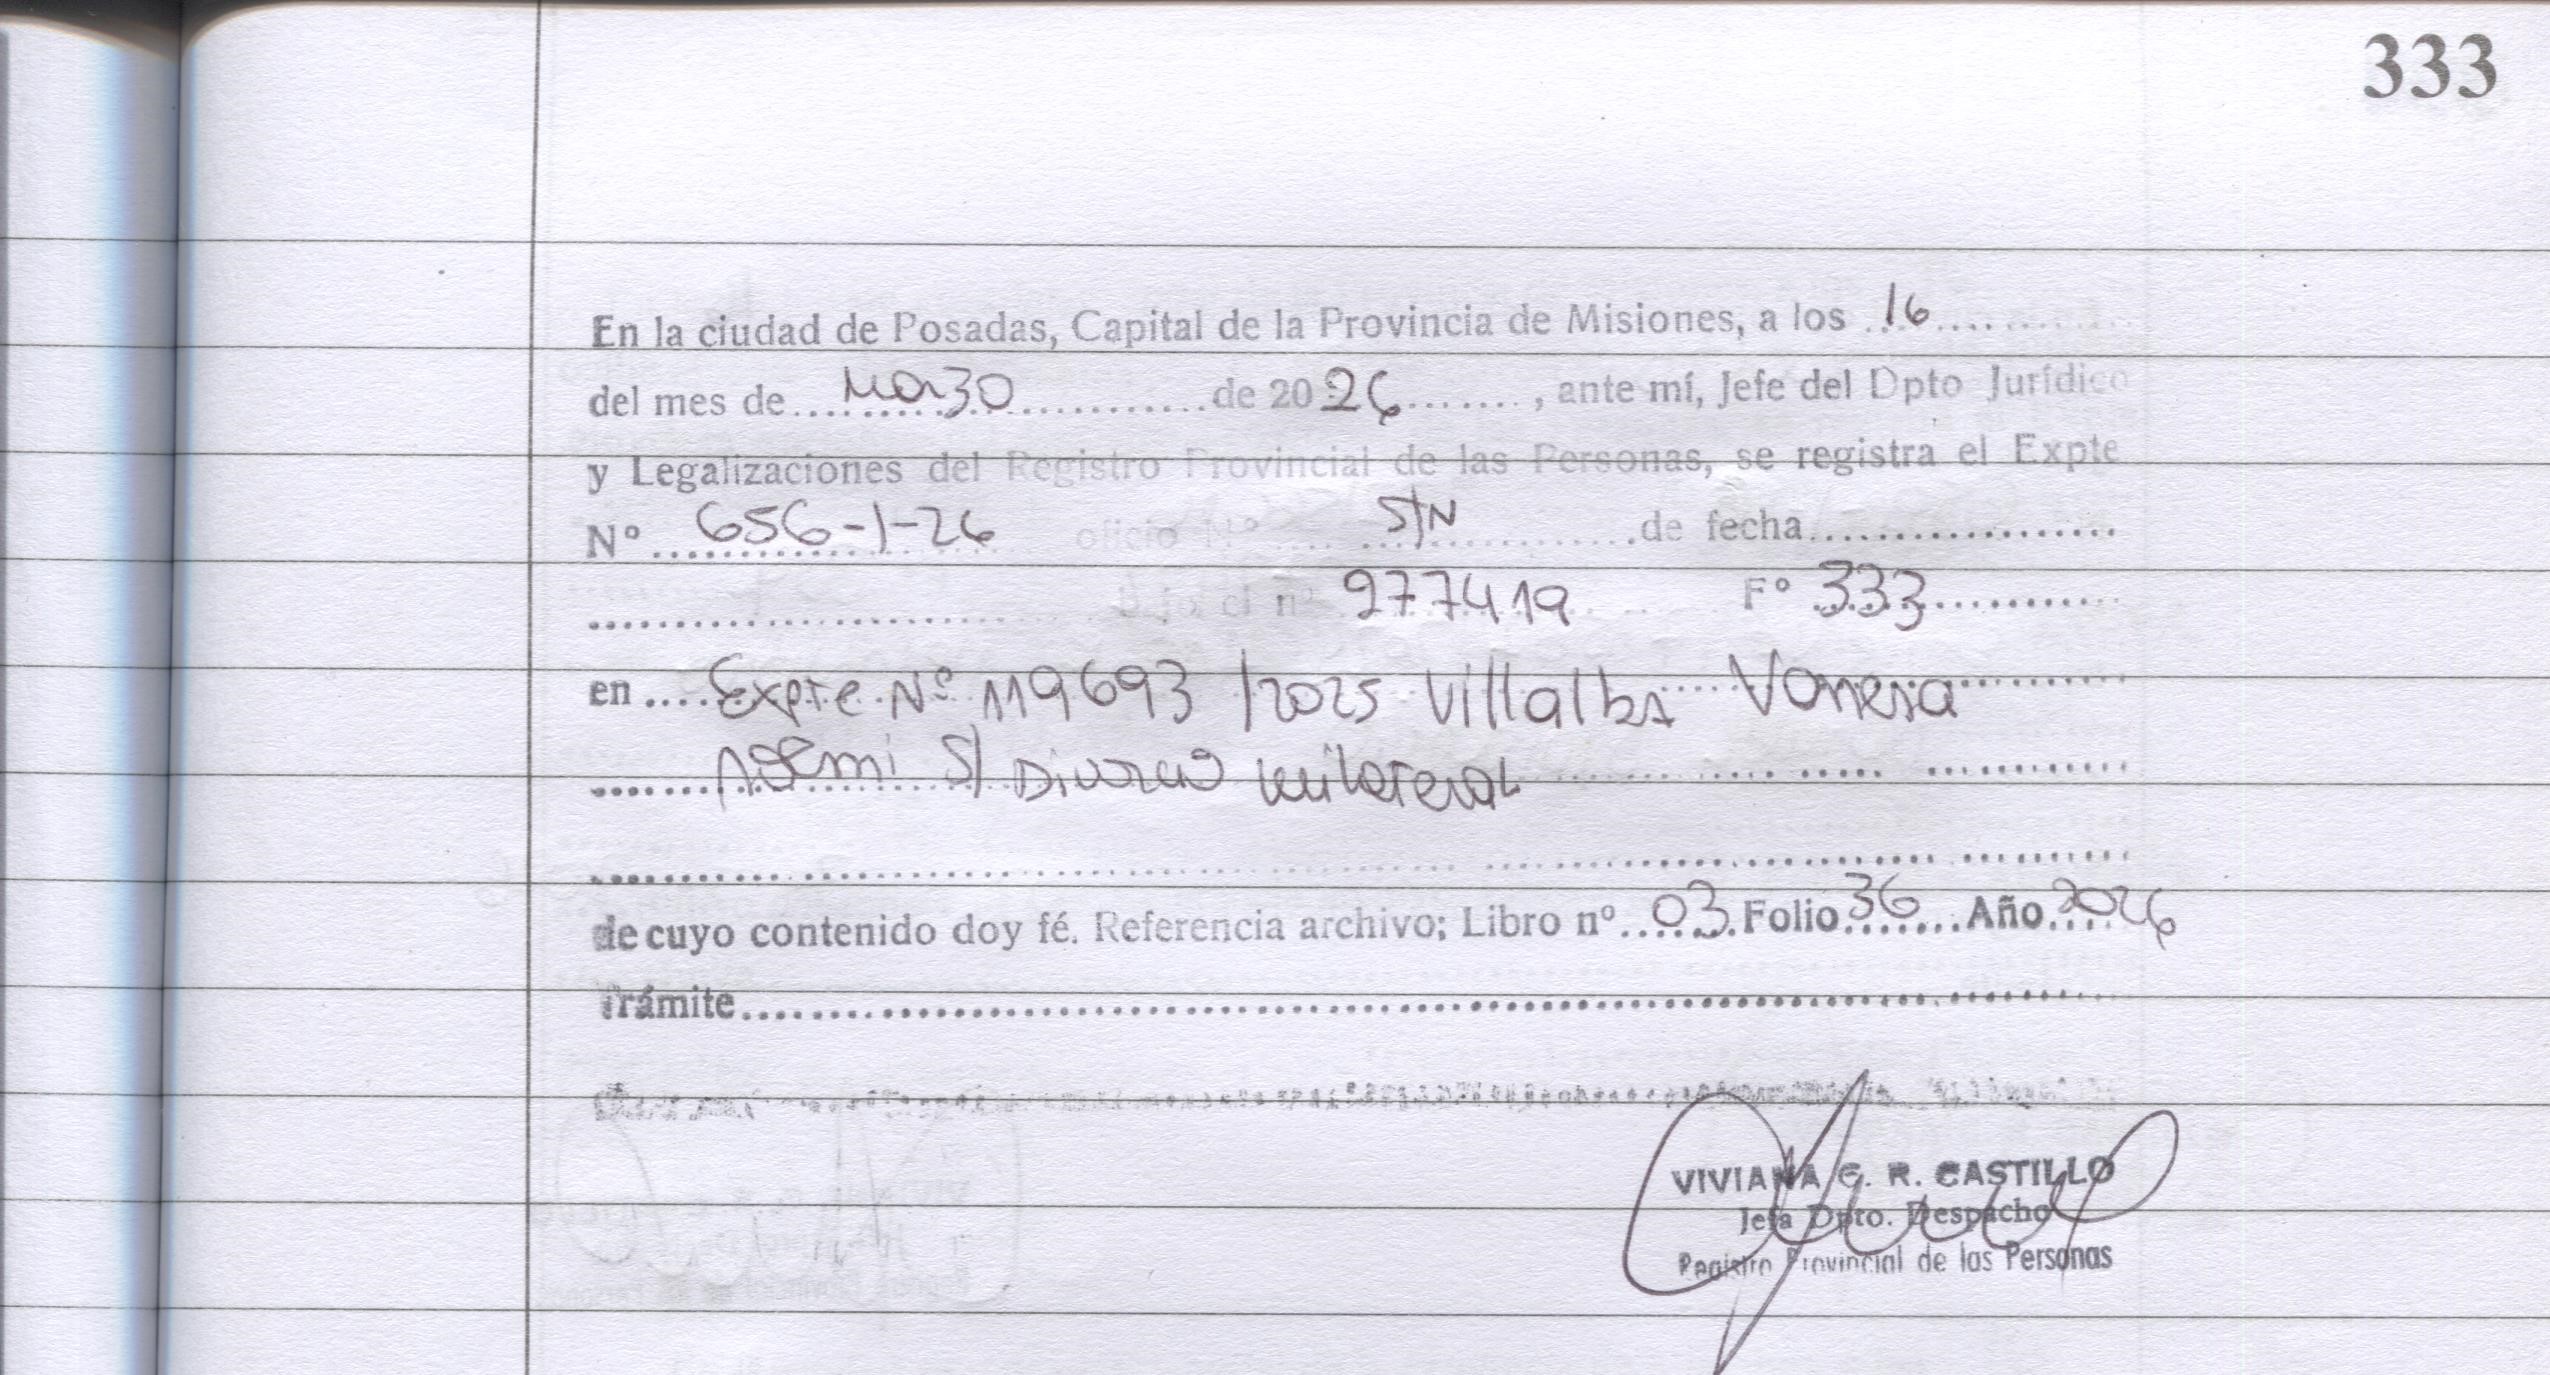 333
En la ciudad de Posadas, Capital de la Provincia de Misiones, a los 16
del mes de Marzo de 2026, ante mí, Jefe del Dpto Jurídico
y Legalizaciones del Registro Provincial de las Personas, se registra el Expte
Nº 656-1-26 oficio Nº S/N de fecha
bajo el nº 977419 Fº 333
en Expte Nº 119693/2025 Villalba Vanesa
Noemi S/ Divorcio Unilateral
de cuyo contenido doy fé. Referencia archivo; Libro nº 03 Folio 36 Año 2026
Trámite
VIVIANA G. R. CASTILLO
Jefa Dpto. Despacho
Registro Provincial de las Personas